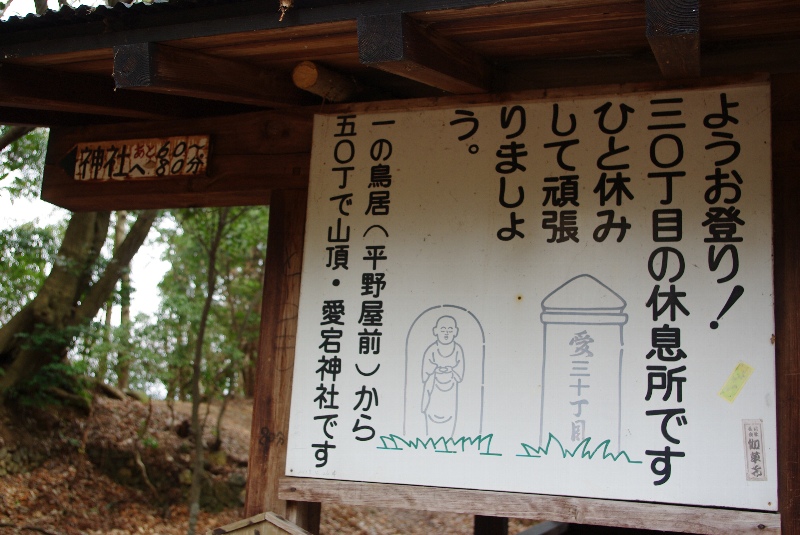 ようお登り！
三〇丁目の休息所です
ひと休み
して頑張
りましょ
う。
一の鳥居（平野屋前）から
五〇丁で山頂・愛宕神社です
愛三十丁目
神社へあと